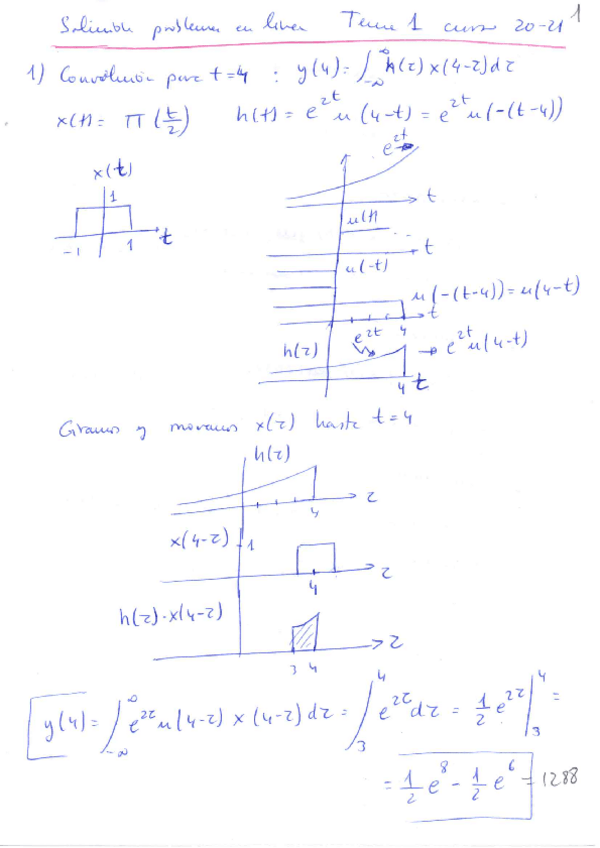 Solución problemas en línea Tema 1 curso 20-21
1
1) Convolución para t=4 : y(4) = ∫_{-∞}^{∞} h(τ) x(4-τ) dτ
x(t) = Π(t/2) h(t) = e^{2t} u(4-t) = e^{2t} u(-(t-4))
x(t)
1
-1 1 t
e^{2t}
t
u(t)
t
u(-t)
u(-(t-4)) = u(4-t)
4 t
h(τ) e^{2t} → e^{2t} u(4-t)
4 t
Giramos y movemos x(τ) hasta t=4
h(τ)
4 τ
x(4-τ) 1
4 τ
h(τ)·x(4-τ)
3 4 τ
y(4) = ∫_{-∞}^{∞} e^{2τ} u(4-τ) x(4-τ) dτ = ∫_3^4 e^{2τ} dτ = 1/2 e^{2τ} |_3^4 =
= 1/2 e^8 - 1/2 e^6 = 1288